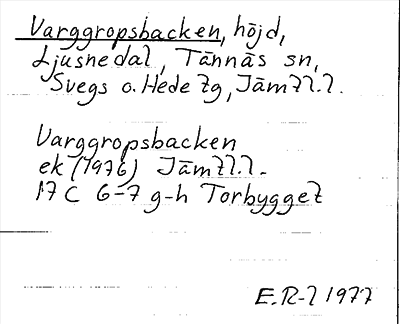 Varggropsbacken, höjd,
Ljusnedal, Tännäs sn,
Svegs o. Hede tg, Jämtl.l.
Varggropsbacken
ek (1976) Jämtl.l.
17 C 6-7 g-h Torbygget
E.R-l 1977